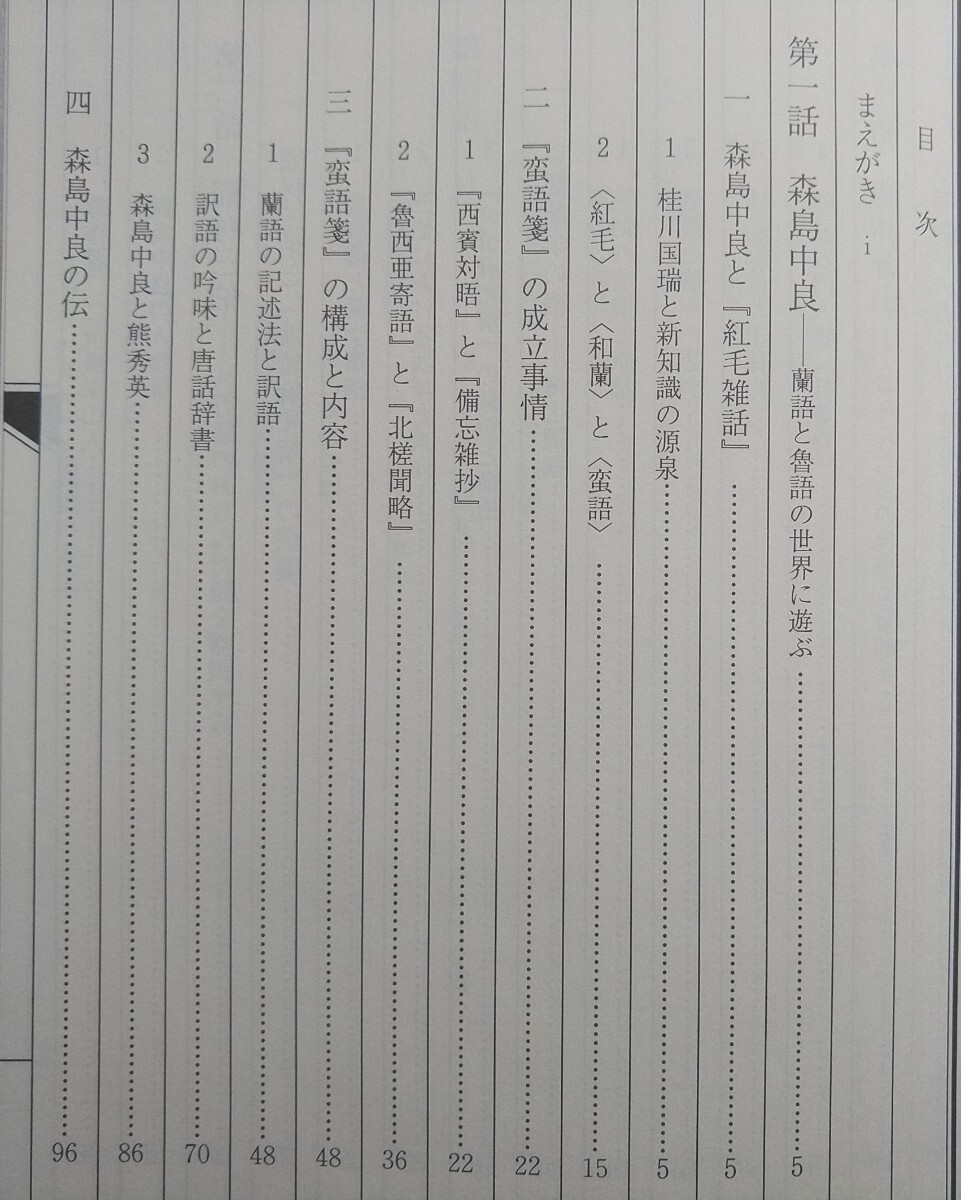 目次
まえがき i
第一話 森島中良——蘭語と魯語の世界に遊ぶ……………… 5
一 森島中良と『紅毛雑話』……………… 5
1 桂川国瑞と新知識の源泉……………… 5
2 〈紅毛〉と〈和蘭〉と〈蛮語〉……………… 15
二 『蛮語箋』の成立事情……………… 22
1 『西賓対晤』と『備忘雑抄』……………… 22
2 『魯西亜寄語』と『北槎聞略』……………… 36
三 『蛮語箋』の構成と内容……………… 48
1 蘭語の記述法と訳語……………… 48
2 訳語の吟味と唐話辞書……………… 70
3 森島中良と熊秀英……………… 86
四 森島中良の伝……………… 96